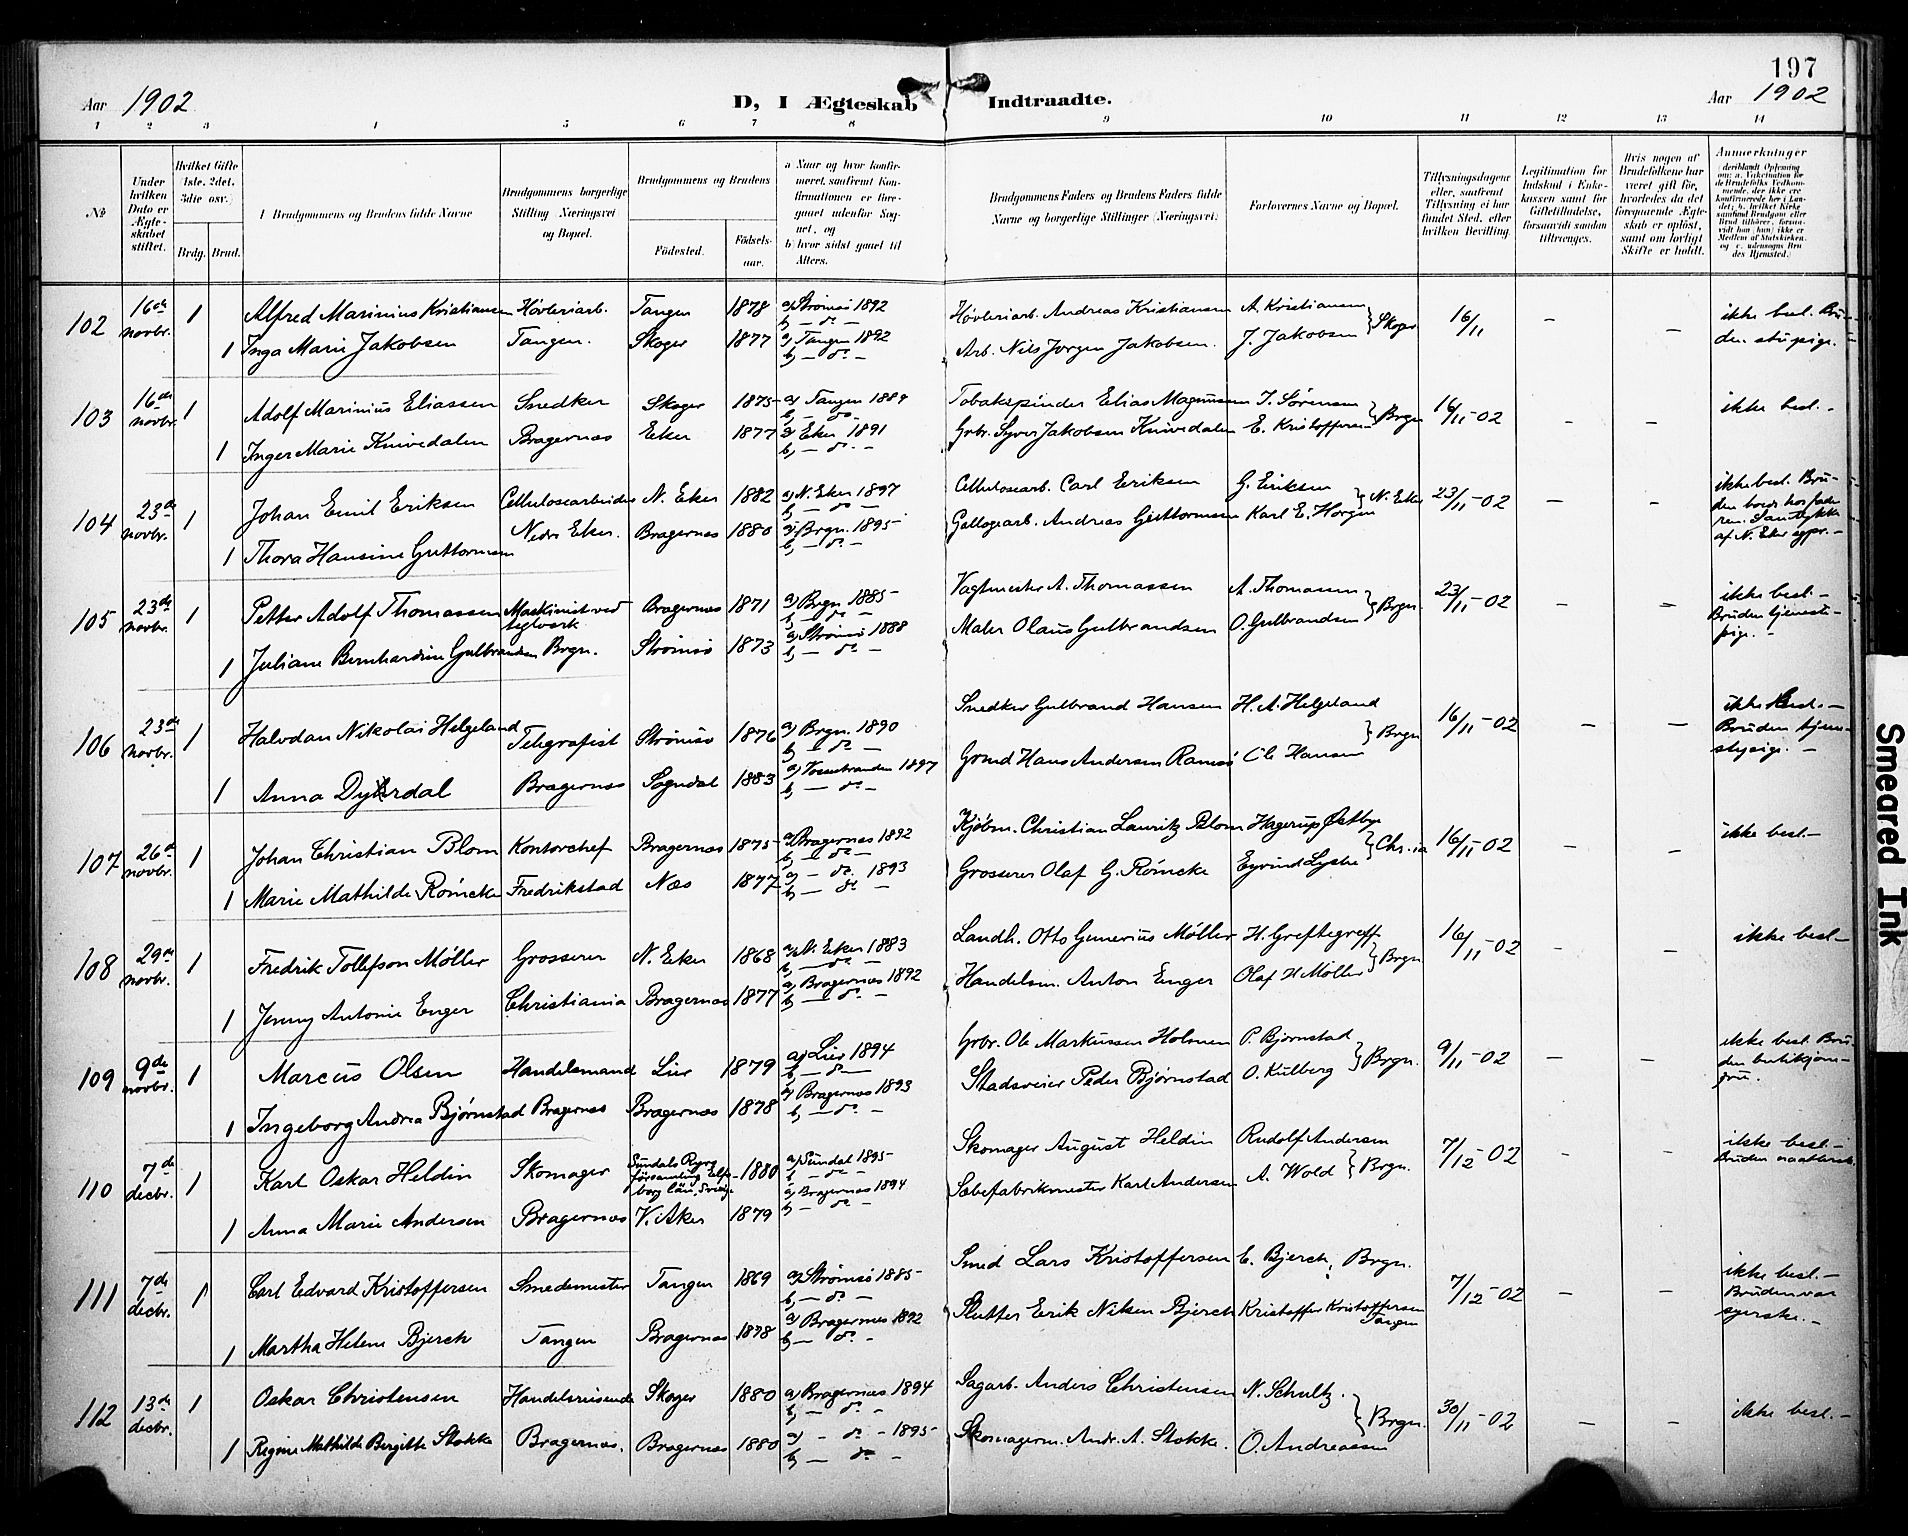 197
Aar 1902
D, I Ægteskab Indtraadte.
Aar 1902
1 2 3 4 5 6 7 8 9 10 11 12 13 14
№
Under hvilken Dato er Ægte-skabet stiftet.
Hvilket Gifte 1ste. 2det. 3die osv.)
Brdg. Brud.
Brudgommens og Brudens fulde Navne
Brudgommens borgerlige Stilling Næringsvei og Bopæl.
Brudgommens og Brudens
Fødested.
Fødsels-aar.
a Naar og hvor konfir-meret, saafremt Kon-firmationen er fore-gaaet udenfor Sog-net, og
b) hvor sidst gaaet til Alters.
Brudgommens Faders og Brudens Faders fulde Navne og borgerlige Stillinger (Næringsvei.
Forlovernes Navne og Bopæl.
Tillysningsdagene eller, saafremt Tillysning ei har fundet Sted, efter hvilken Bevilling.
Legitimation for Indskud i Enke-kassen samt for Giftetilladelse, forsaavidt saadan tiltrænges.
Hvis nogen af Brudefolkene har været gift før, hvorledes da det foregaaende Ægte-skab er opløst, samt om lovligt Skifte er holdt.
Anmerkninger
102 16de novbr. 1 Alfred Marinius Kristiansen Høvleriarb. Tangen 1878 a) Strømsø 1892 b) — do — Høvleriarb. Andreas Kristiansen A. Kristiansen 16/11 – – ikke besl. Bru-
1 Inga Marie Jakobsen Tangen. Skoger 1877 a) Tangen 1892 b) — do — Arb. Nils Jørgen Jakobsen. J. Jakobsen } Skoger den stupige. –
103 16de novbr. 1 Adolf Marinius Eliassen Snedker Skoger 1875 a) Tangen 1889 b) — do — Tobakspinder Elias Magnussen I. Sørensen } Brgn 16/11-02 – – ikke besl. –
1 Inger Marie Knivedalen Bragernæs Eker 1877 a) Eker 1891 b) — do — Grbr. Syver Jakobsen Knivedalen E. Kristoffersen
104 23de novbr. 1 Johan Emil Eriksen Cellulosearbeider N. Eker 1882 a) N. Eker 1897 b) — do — Cellulosearb. Carl Eriksen G. Eriksen } N. Eker 23/11-02 – – ikke besl. Bru-den hos
1 Thora Hansine Guttormsen Nedre Eker. Bragernæs 1880 a) Brgn. 1895 b) — do — Andreas Guttormsen Karl E. Horgen af N. Eker
105 23de novbr. 1 Petter Adolf Thomassen Maskinist ved teglverk Bragernæs 1871 a) Brgn. 1885 b) — do — Vagtmester A. Thomassen A. Thomassen } Brgn. 23/11-02 – – ikke besl. – Bruden tjeneste-pige. –
1 Juliane Bernhardine Gulbrandsen Brgn. Strømsø 1873 a) Strømsø 1888 b) — do — Maler Olaus Gulbrandsen O. Gulbrandsen
106 23de novbr. 1 Halvdan Nikolai Helgeland Telegrafist Strømsø 1876 a) Brgn. 1890 b) — do — Snedker Gulbrand Hansen H. A. Helgeland } Brgn 16/11-02 – – ikke besl. – Bruden tjene-stepige. –
1 Anna Dyrdal Bragernæs Sogndal 1883 a) Vossestranden 1897 b) — do — Hans Andersen Ole Hansen
107 26de novbr. 1 Johan Christian Blom Kontorchef Bragernæs 1875 a) Bragernæs 1892 b) — do — Kjøbm. Christian Lauritz Blom Hagerup Østbye } Chr.ia 16/11-02 – – ikke besl. –
1 Marie Mathilde Römcke Fredrikstad Næs 1877 a) — do. 1893 b) — do — Grosserer Olaf G. Römcke Eyvind Lysbe
108 29de novbr. 1 Fredrik Tollefson Møller Grosserer N. Eker 1868 a) N. Eker 1883 b) — do — Landh. Otto Gunerius Møller H. Greftegreff } Brgn 16/11-02 – – ikke besl –
1 Jenny Antonie Enger Christiania Bragernæs 1877 a) Bragernæs 1892 b) — do — Handelsm. Anton Enger Olaf H Møller
109 9de novbr. 1 Marcus Olsen Handelsmand Lier 1879 a) Lier 1894 b) — do — Grbr. Ole Markussen Holmen P. Bjørnstad } Brgn. 9/11-02 – – ikke besl. Bru-den butikjom-fru.
1 Ingeborg Andrea Bjørnstad Bragernæs Bragernæs 1878 a) Bragernæs 1893 b) — do — Stadsveier Peder Bjørnstad O. Kulberg
110 7de decbr. 1 Karl Oskar Heldin Skomager Sundals Ryrs församling Elfs-borg län, Sverige 1880 a) Sundal 1895 b) — do — Skomager August Heldin Rudolf Andersen } Brgn. 7/12-02 – – ikke besl. –
1 Anna Marie Andersen Bragernæs V. Aker 1879 a) Bragernæs 1894 b) — do — Sæbefabrikmester Karl Andersen A. Wold
111 7de decbr. 1 Carl Edvard Kristoffersen Smedemester Tangen 1869 a) Strømsø 1885 b) — do — Smed Lars Kristoffersen C. Bjerch, Brgn. 7/12-02 – – ikke besl. – Bruden var syerske. –
1 Martha Helene Bjerch Tangen Bragernæs 1878 a) Bragernæs 1892 b) — do — Slutter Erik Nilsen Bjerch Kristoffer Kristoffersen Tangen
112 13de decbr. 1 Oskar Christensen Handelsreisende Skoger 1880 a) Bragernæs 1894 b) — do — Sagarb. Anders Christensen N. Schultz. } Brgn. 30/11-02 – – ikke besl. –
1 Regine Mathilde Bergitte Stokke Bragernæs. Bragernæs 1880 a) — do — 1895 b) — do — Skomagerm. Andr. A. Stokke. O. Andreassen
Smeared Ink